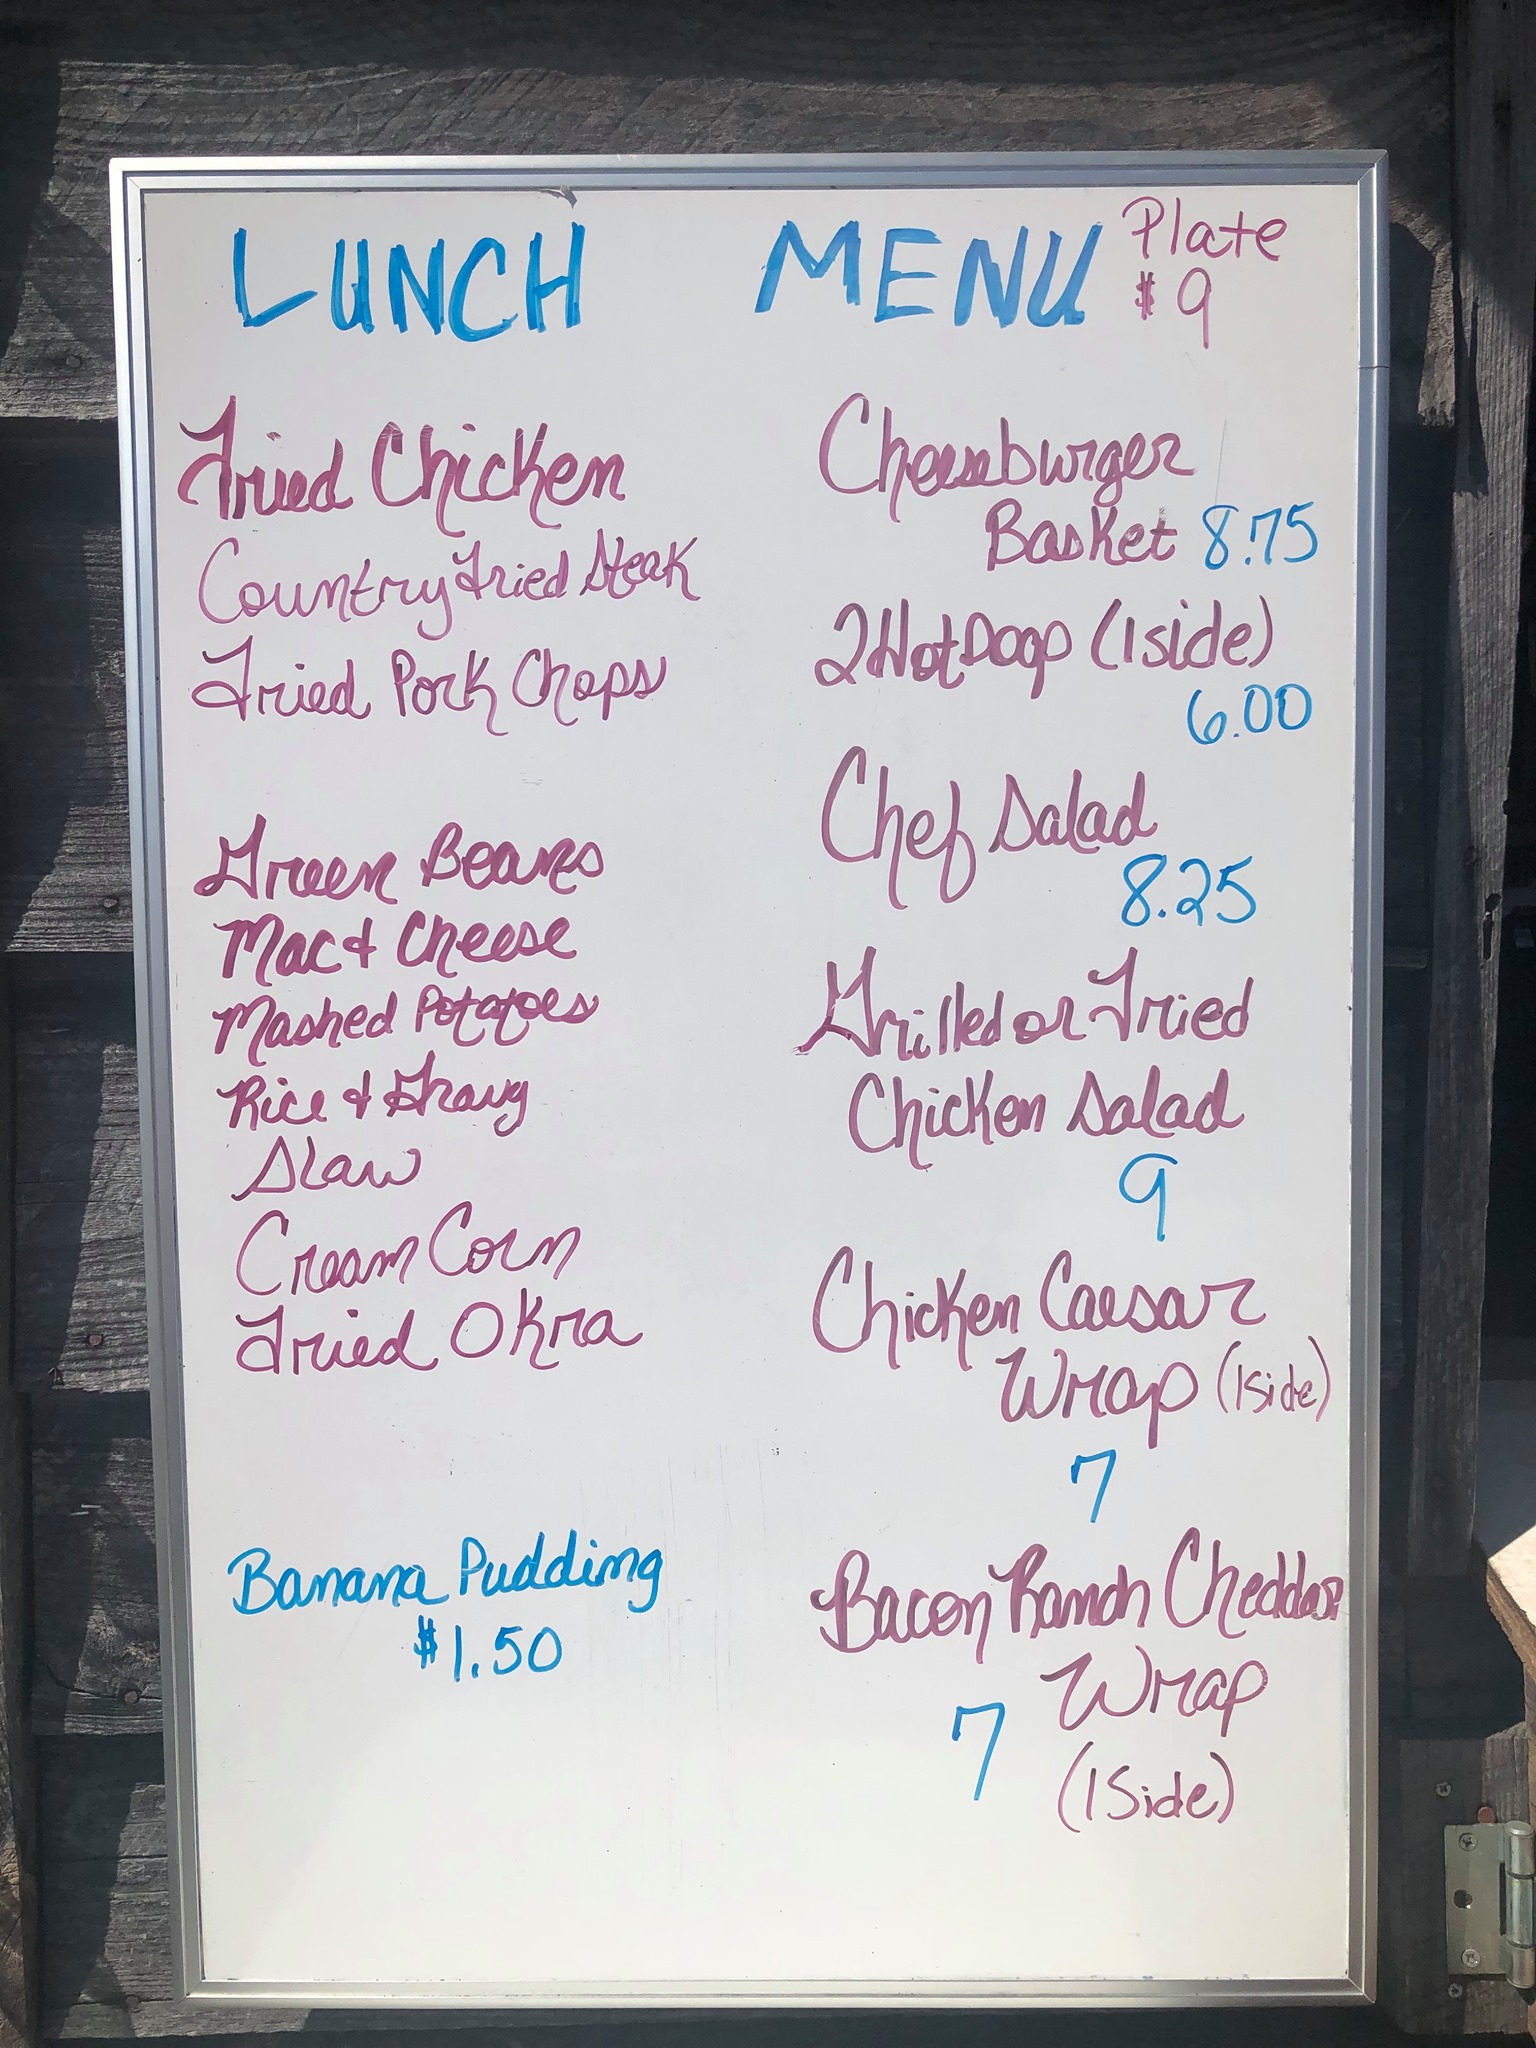 LUNCH MENU
Plate
$9
Fried Chicken
Country Fried Steak
Fried Pork Chops
Green Beans
Mac & Cheese
Mashed Potatoes
Rice & Gravy
Slaw
Cream Corn
Fried Okra
Banana Pudding
$1.50
Cheeseburger
Basket 8.75
2 Hot Dogs (1 side)
6.00
Chef Salad
8.25
Grilled or Fried
Chicken Salad
9
Chicken Caesar
Wrap (1 side)
7
Bacon Ranch Cheddar
Wrap
7
(1 Side)